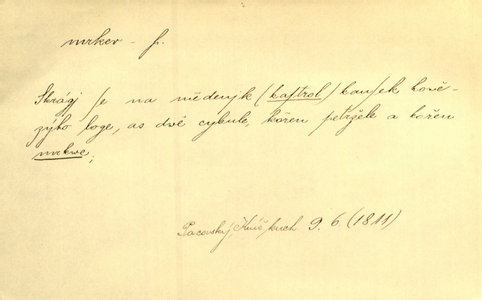 mrkev - f.
Skrágj se na měděnjk (kastrol) kausek hově-
zýho loge, as dvě cybule, kořen petržele a kořen
mrkwe,
Pacovský, Kuch 9. 6 (1811)